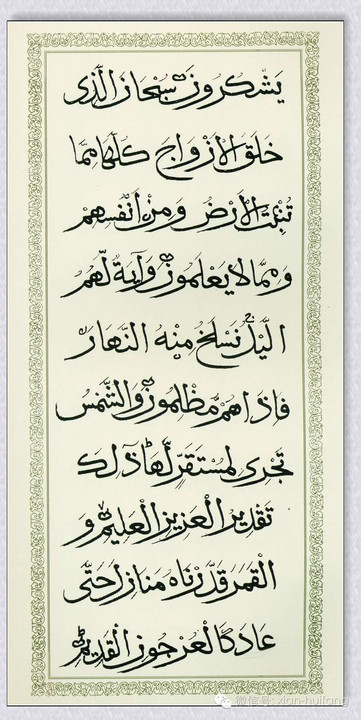 يَشْكُرُونَ سُبْحَانَ الَّذِى
خَلَقَ الْأَزْوَاجَ كُلَّهَا مِمَّا
تُنْبِتُ الْأَرْضُ وَمِنْ أَنْفُسِهِمْ
وَمِمَّا لَا يَعْلَمُونَ وَآيَةٌ لَّهُمُ
الَّيْلُ نَسْلَخُ مِنْهُ النَّهَارَ
فَإِذَا هُمْ مُظْلِمُونَ وَالشَّمْسُ
تَجْرِى لِمُسْتَقَرٍّ لَّهَا ذَلِكَ
تَقْدِيرُ الْعَزِيزِ الْعَلِيمِ وَ
الْقَمَرَ قَدَّرْنَاهُ مَنَازِلَ حَتَّى
عَادَ كَالْعُرْجُونِ الْقَدِيمِ
微信号: xian-huifang